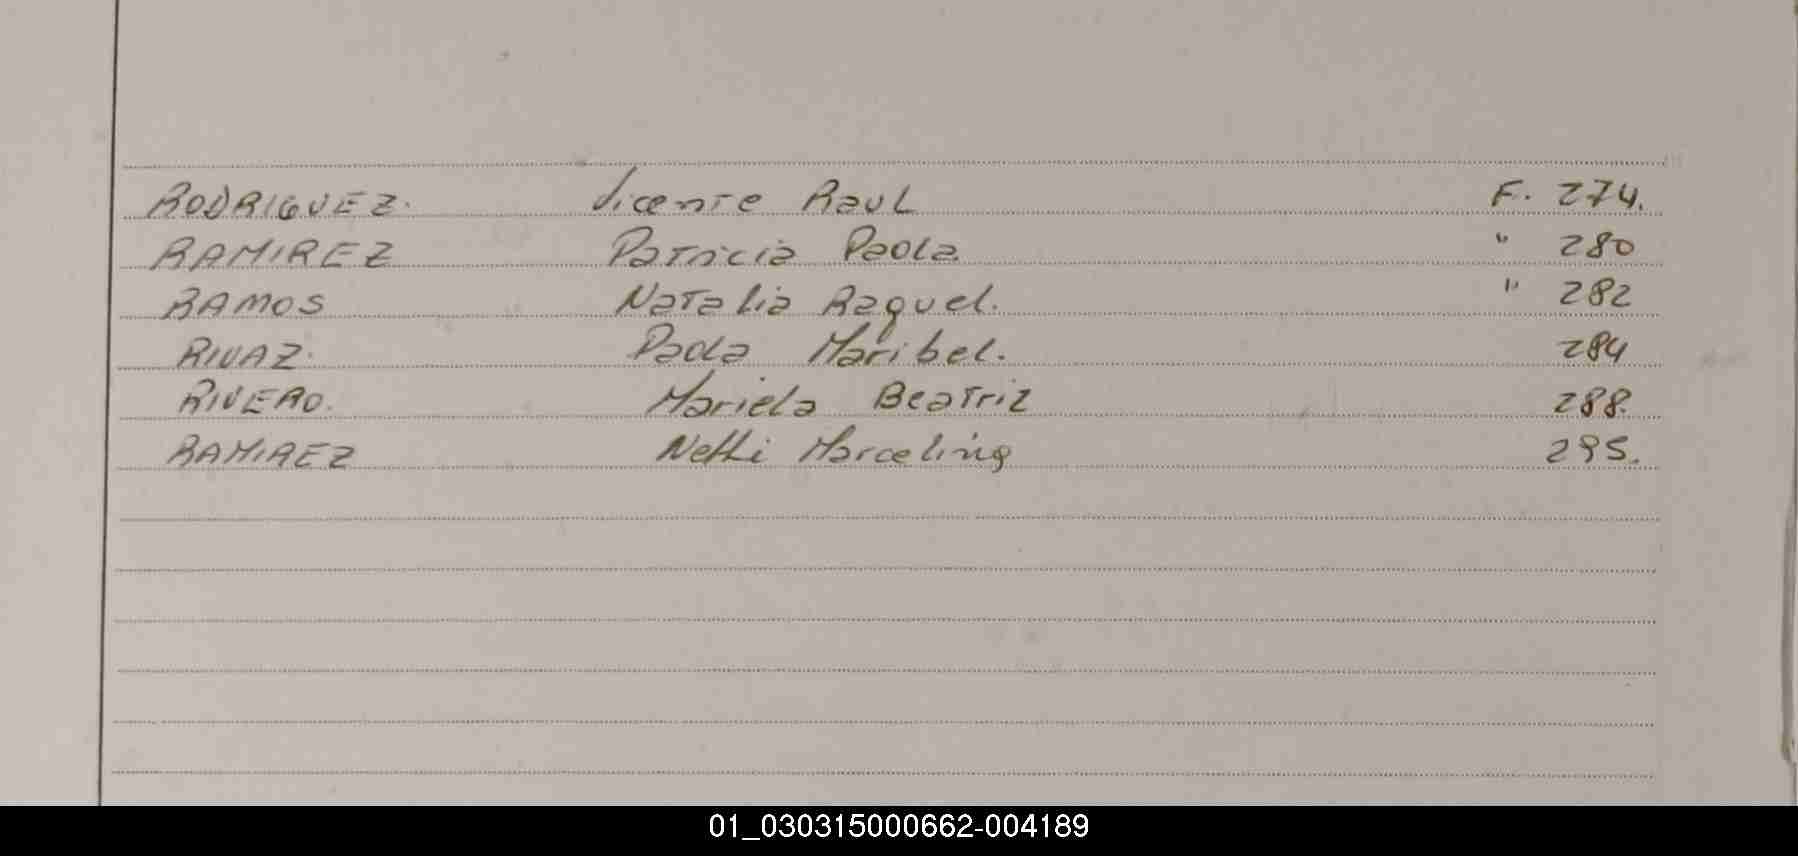 RODRIGUEZ. Vicente Raul F. 274.
RAMIREZ Patricia Paola " 280
RAMOS Natalia Raquel. " 282
RIVAZ. Paola Maribel. 284
RIVERO. Mariela Beatriz 288.
RAMIREZ Nethi Marcelina 295.
01_030315000662-004189